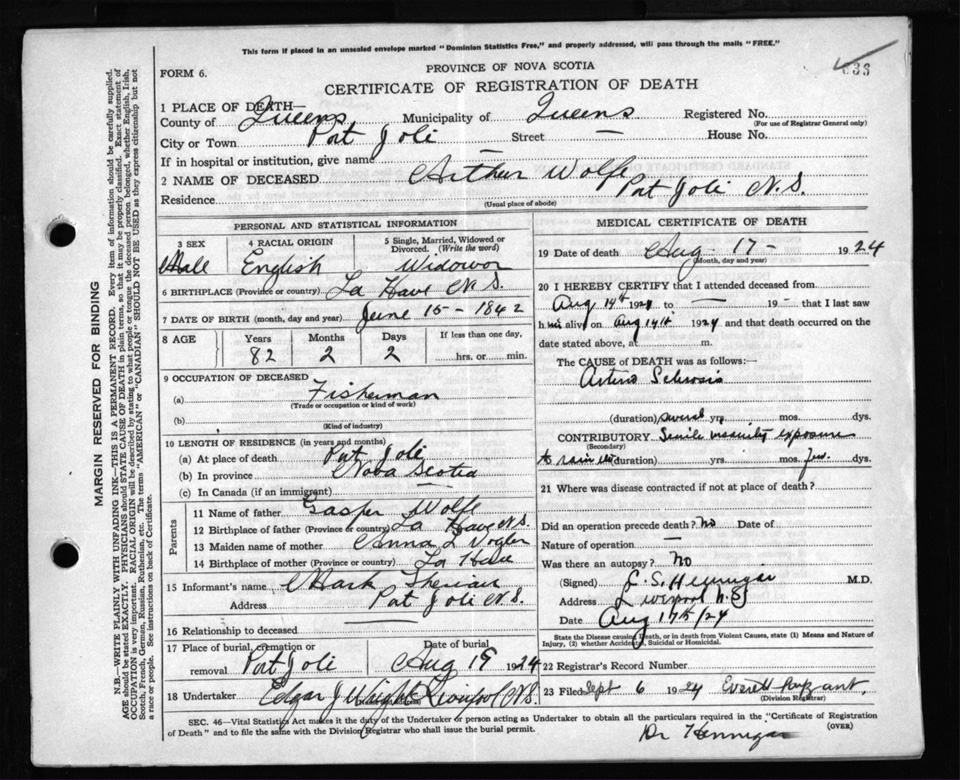 This form if placed in an unsealed envelope marked "Dominion Statistics Free," and properly addressed, will pass through the mails "FREE."
FORM 6.
PROVINCE OF NOVA SCOTIA
CERTIFICATE OF REGISTRATION OF DEATH
1 PLACE OF DEATH—
County of Queens Municipality of Queens Registered No.
(For use of Registrar General only)
City or Town Port Joli Street — House No.
If in hospital or institution, give name —
2 NAME OF DECEASED Arthur Wolfe
Residence Port Joli N.S.
(Usual place of abode)
PERSONAL AND STATISTICAL INFORMATION
3 SEX 4 RACIAL ORIGIN 5 Single, Married, Widowed or Divorced. (Write the word)
Male English Widowor
6 BIRTHPLACE (Province or country) La Have N.S.
7 DATE OF BIRTH (month, day and year) June 15 - 1842
8 AGE Years Months Days If less than one day,
82 2 2 hrs. or min.
9 OCCUPATION OF DECEASED
(a) Fisherman
(Trade or occupation or kind of work)
(b)
(Kind of industry)
10 LENGTH OF RESIDENCE (in years and months)
(a) At place of death Port Joli
(b) In province Nova Scotia
(c) In Canada (if an immigrant) —
Parents
11 Name of father Gasper Wolfe
12 Birthplace of father (Province or country) La Have N.S.
13 Maiden name of mother Anna L Vogler
14 Birthplace of mother (Province or country) La Have
15 Informant's name Mark
Address Port Joli N.S.
16 Relationship to deceased
17 Place of burial, cremation or removal Port Joli Date of burial Aug 19 1924
18 Undertaker Edgar J Wright Liverpool N.S.
MEDICAL CERTIFICATE OF DEATH
19 Date of death Aug - 17 - 1924
(Month, day and year)
20 I HEREBY CERTIFY that I attended deceased from
Aug 14th 1924 to — 19 — that I last saw
h im alive on Aug 14th 1924 and that death occurred on the
date stated above, at m.
The CAUSE of DEATH was as follows:—
Arterio Sclerosis
(duration) several yrs. mos. dys.
CONTRIBUTORY Senile insanity exposure
(Secondary)
to rain etc (duration) yrs. mos. few dys.
21 Where was disease contracted if not at place of death?
Did an operation precede death? No Date of
Nature of operation —
Was there an autopsy? No
(Signed) J. S. Hennigar M.D.
Address Liverpool N.S.
Date Aug 17th/24
State the Disease causing Death, or in death from Violent Causes, state (1) Means and Nature of Injury, (2) whether Accidental, Suicidal or Homicidal.
22 Registrar's Record Number
23 Filed Sept 6 1924 Everett
(Division Registrar)
SEC. 46—Vital Statistics Act makes it the duty of the Undertaker or person acting as Undertaker to obtain all the particulars required in the "Certificate of Registration
of Death" and to file the same with the Division Registrar who shall issue the burial permit.
(OVER)
Dr Hennigar
MARGIN RESERVED FOR BINDING
N.B.—WRITE PLAINLY WITH UNFADING INK—THIS IS A PERMANENT RECORD. Every item of information should be carefully supplied.
AGE should be stated EXACTLY. PHYSICIANS should STATE CAUSE OF DEATH in plain terms, so that it may be properly classified. Exact statement of
OCCUPATION is very important. RACIAL ORIGIN will be described by stating to what people or tongue the deceased person belonged, whether English, Irish,
Scotch, French, German, Russian, Ruthenian, etc. The terms "AMERICAN" or "CANADIAN" SHOULD NOT BE USED as they express citizenship but not
a race or people. See instructions on back of Certificate.